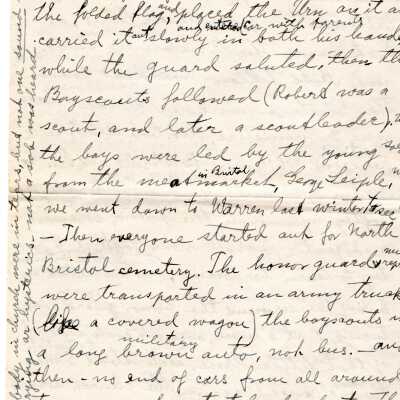 the folded flag, and placed the Urn on it a
carried it out slowly in both his hands and entered car, with parents
while the guard saluted, then th
Boyscouts followed (Robert was a
scout, and later a scoutleader).
the boys were led by the young
from the meatmarket, in Bristol George Leiple,
we went down to Warren last winter to see
- Then everyone started out for North
Bristol cemetery. The honor guard
were transported in an army truck
(like a covered wagon) the boyscouts
a long brown military auto, not bus. - and
then - no end of cars from all around
body in church were in tears, but not one
crying or hysterics - not a sob was heard